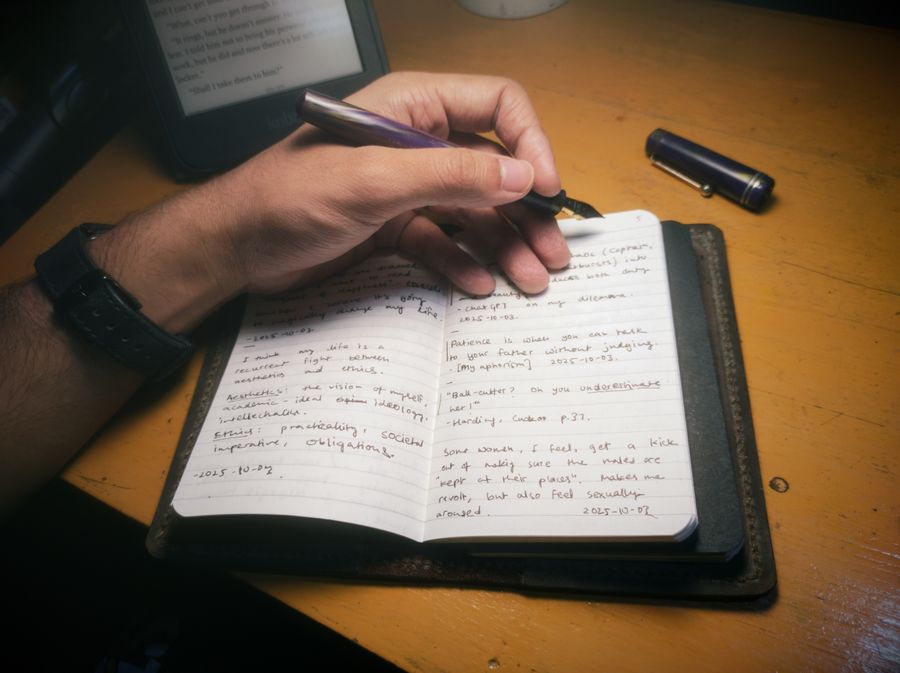 and I can't get
"What, can't you get through to
"It rings, but he doesn't answer.
hear. I told him not to bring his
work, but he did and now there's a
locker."
"Shall I take them to him?"
kobo
to read
it's going
to magically change my life.
- 2025-10-03.
I think my life is a
recurrent fight between
aesthetics and ethics.
Aesthetics: the vision of myself,
academic-ideal ideology,
intellectualism.
Ethics: practicality, societal
imperative, obligations.
- 2025-10-03
5
(Captain,
into
both duty
and beauty
- ChatGPT on my dilemma.
2025-10-03.
Patience is when you can talk
to your father without judging.
- [My aphorism] 2025-10-03.
"Ball-cutter? Oh you underestimate
her!"
- Harding, Cuckoo p.37.
Some women, I feel, get a kick
out of making sure the males are
"kept at their places". Makes me
revolt, but also feel sexually
aroused. 2025-10-03